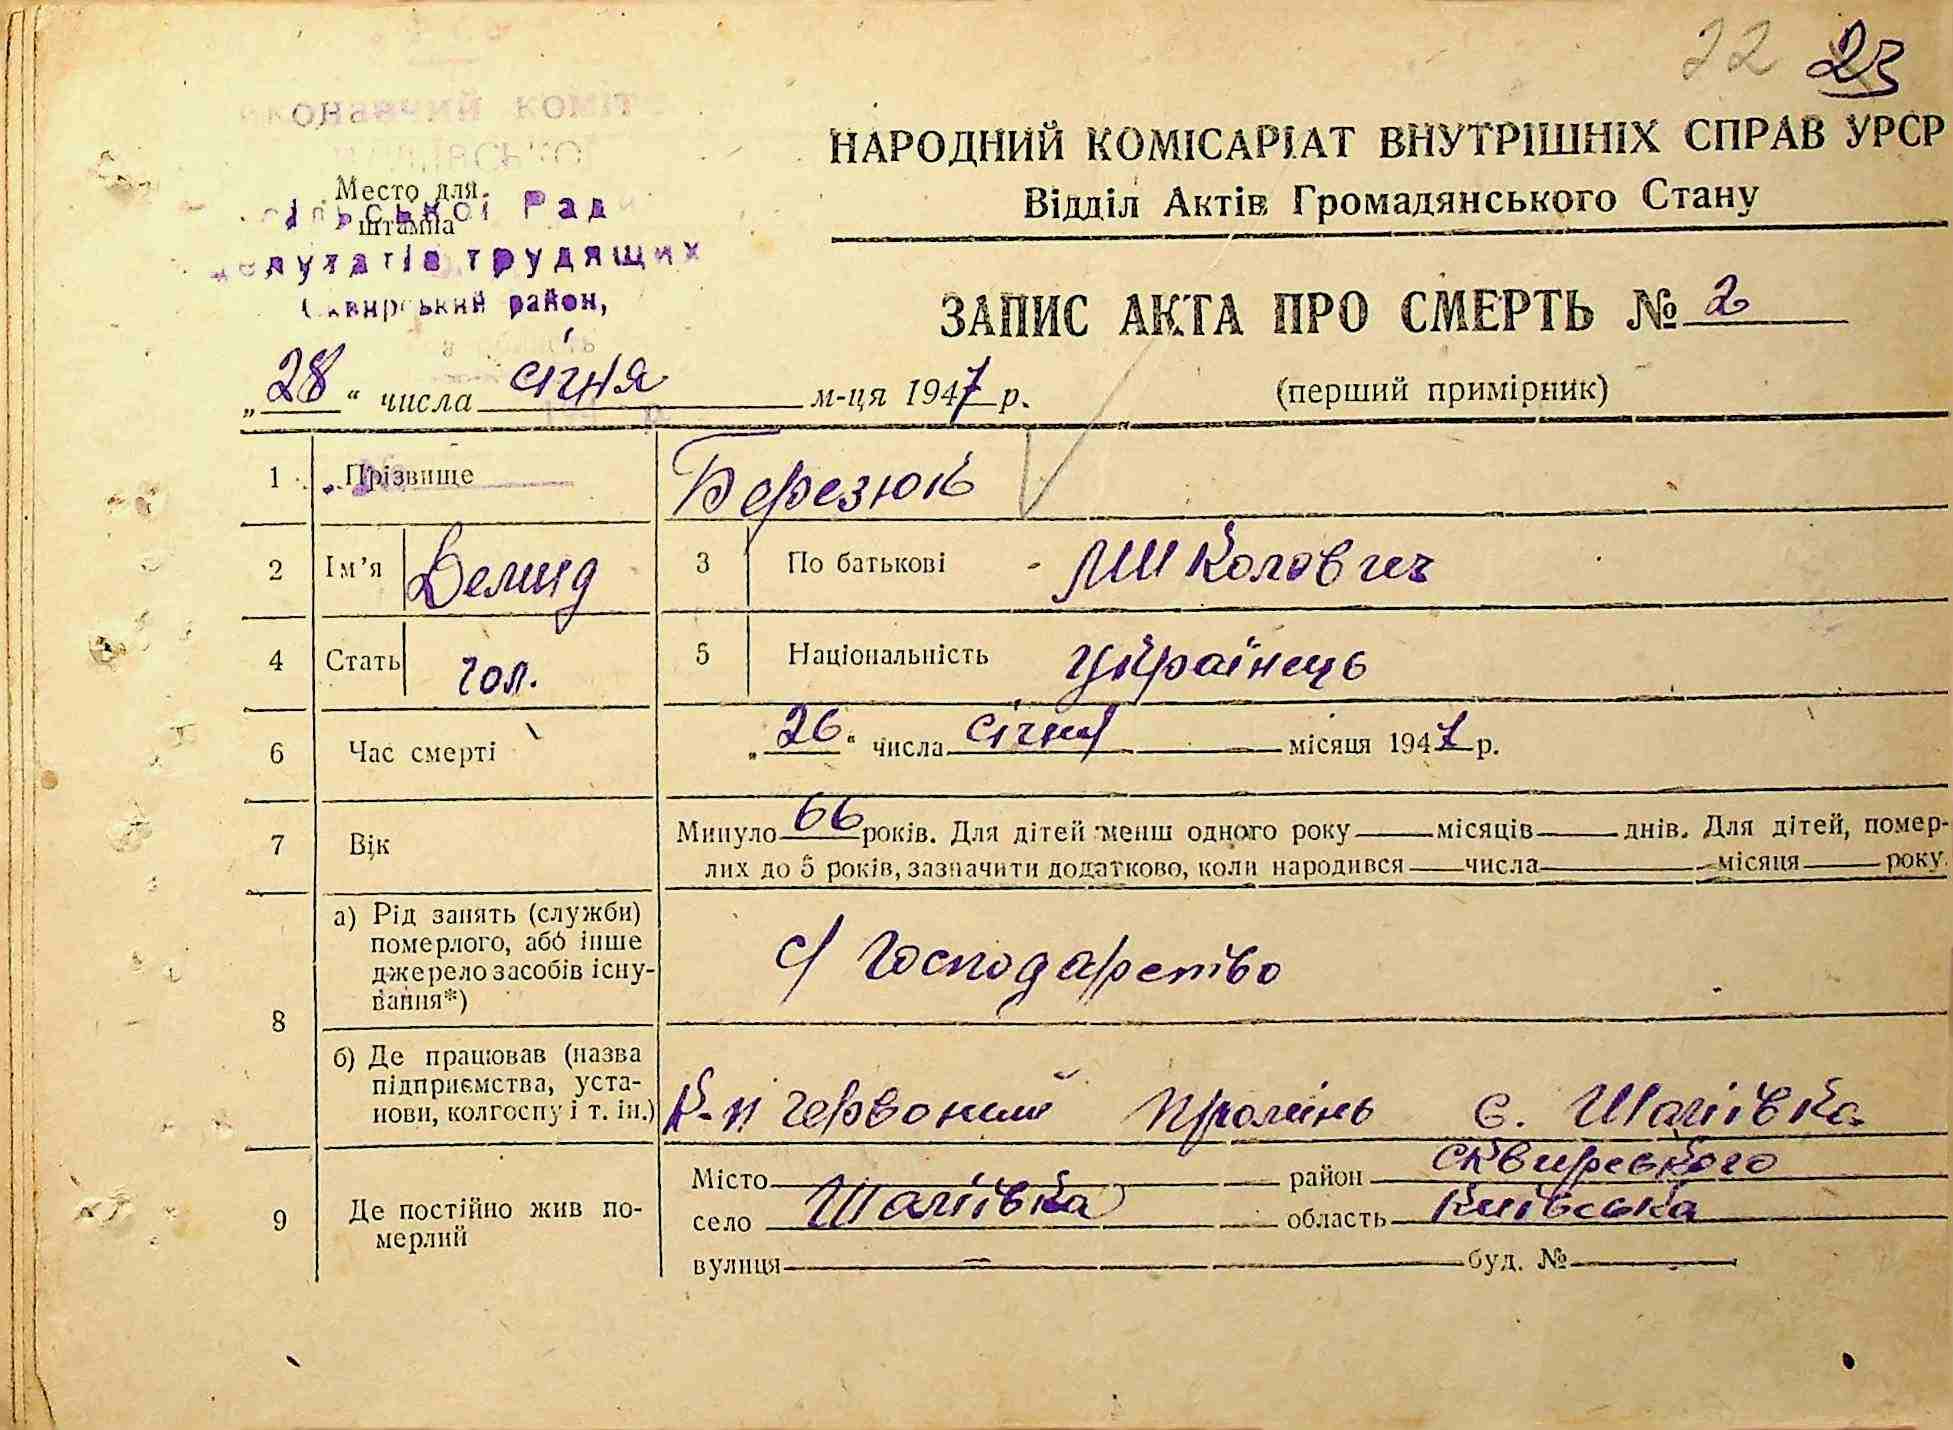 22 23
конавчий коміт
Место для
штампа
сільської Ради
депутатів трудящих
Сквирський район,
НАРОДНИЙ КОМІСАРІАТ ВНУТРІШНІХ СПРАВ УРСР
Відділ Актів Громадянського Стану
ЗАПИС АКТА ПРО СМЕРТЬ № 2
„28“ числа січня м-ця 1947 р.
(перший примірник)
1 Прізвище Березюк
2 Ім'я Демид 3 По батькові Миколович
4 Стать чол. 5 Національність Українець
6 Час смерті „26“ числа січня місяця 1947 р.
7 Вік Минуло 66 років. Для дітей менш одного року місяців днів. Для дітей, помер-
лих до 5 років, зазначити додатково, коли народився числа місяця року
8 а) Рід занять (служби)
померлого, або інше
джерело засобів існу-
вання*)
с/господарство
б) Де працював (назва
підприємства, уста-
нови, колгоспу і т. ін.)
К-п Червоний промінь с. Шаліївка
9 Де постійно жив по-
мерлий
Місто район Сквирського
село Шаліївка область Київська
вулиця — буд. №